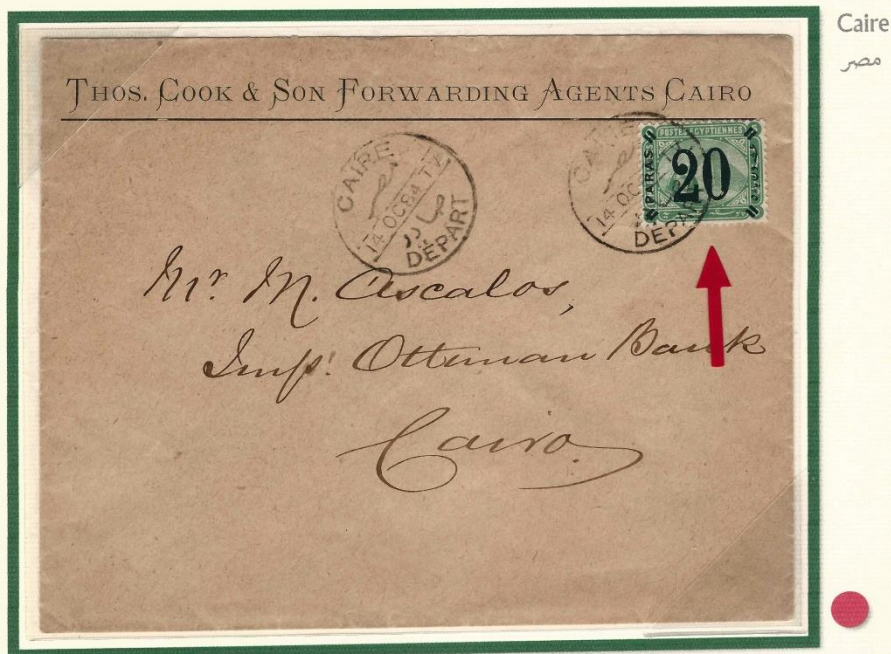 Caire
مصر
THOS. COOK & SON FORWARDING AGENTS CAIRO
CAIRE
مصر
14 OC 84 T
صادر
DÉPART
CAIRE
14 OC
DEPART
POSTES EGYPTIENNES
PARAS
20
Mr. M. Ascalos,
Impl. Ottoman Bank
Cairo.